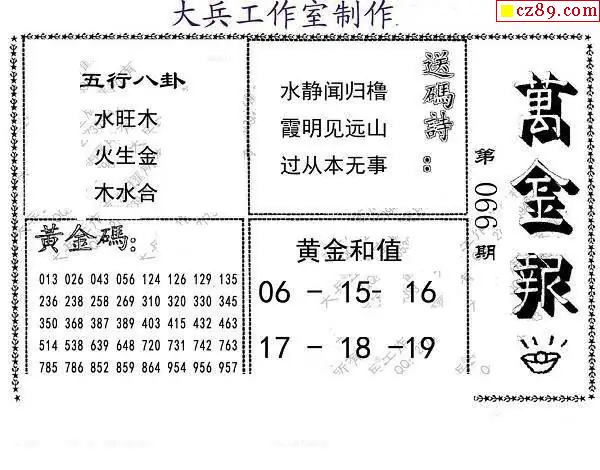 大兵工作室制作
cz89.com
五行八卦
水旺木
火生金
木水合
送碼詩：
水静闻归橹
霞明见远山
过从本无事
萬金報
第066期
黃金碼：
013 026 043 056 124 126 129 135
236 238 258 269 310 320 330 345
350 368 387 389 403 415 432 463
514 538 639 648 720 731 742 763
785 786 852 859 864 954 956 957
黄金和值
06 - 15- 16
17 - 18 -19